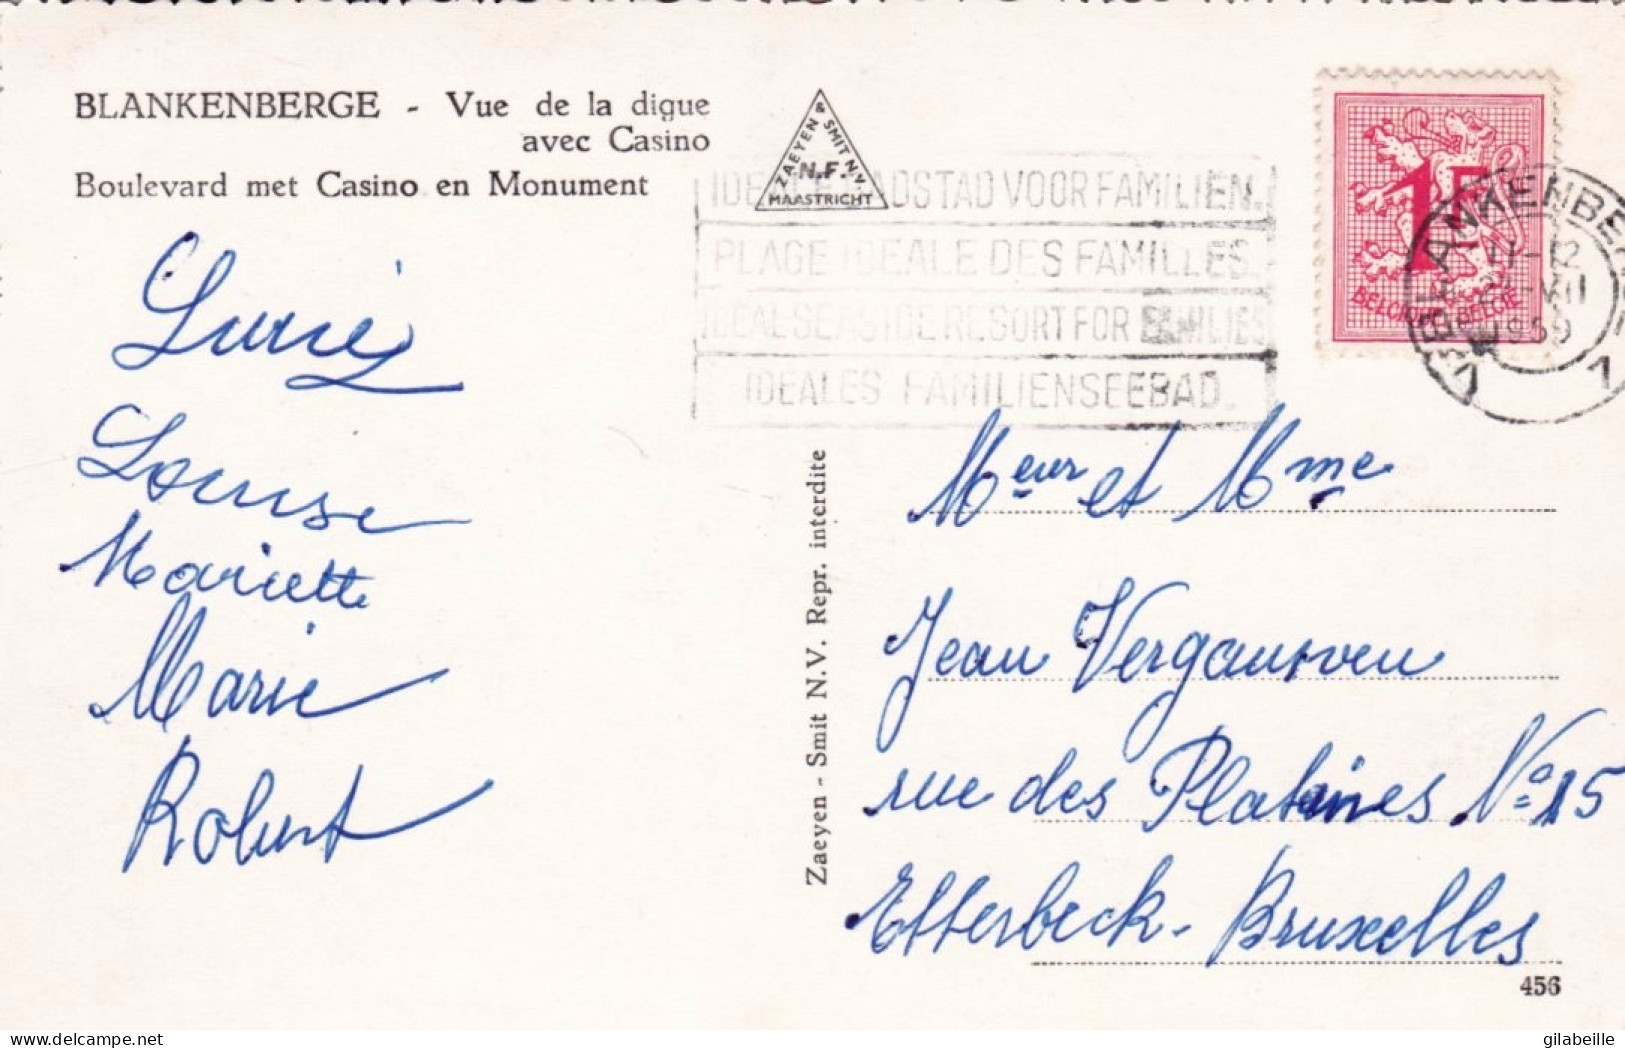 BLANKENBERGE - Vue de la digue
avec Casino
Boulevard met Casino en Monument
ZAEYEN & SMIT N.V.
N.F.
MAASTRICHT
IDEALE BADSTAD VOOR FAMILIEN.
PLAGE IDEALE DES FAMILLES.
IDEAL SEASIDE RESORT FOR FAMILIES
IDEALES FAMILIENSEEBAD.
1F
BELGIQUE BELGIE
BLANKENBERGE
11-12
VII
1959
1
Lucie
Louise
Mariette
Marie
Robert
Zaeyen - Smit N.V. Repr. interdite
Meur et Mme
Jean Vergauwen
rue des Platines No 15
Etterbeck - Bruxelles
456
delcampe.net
gilabeille